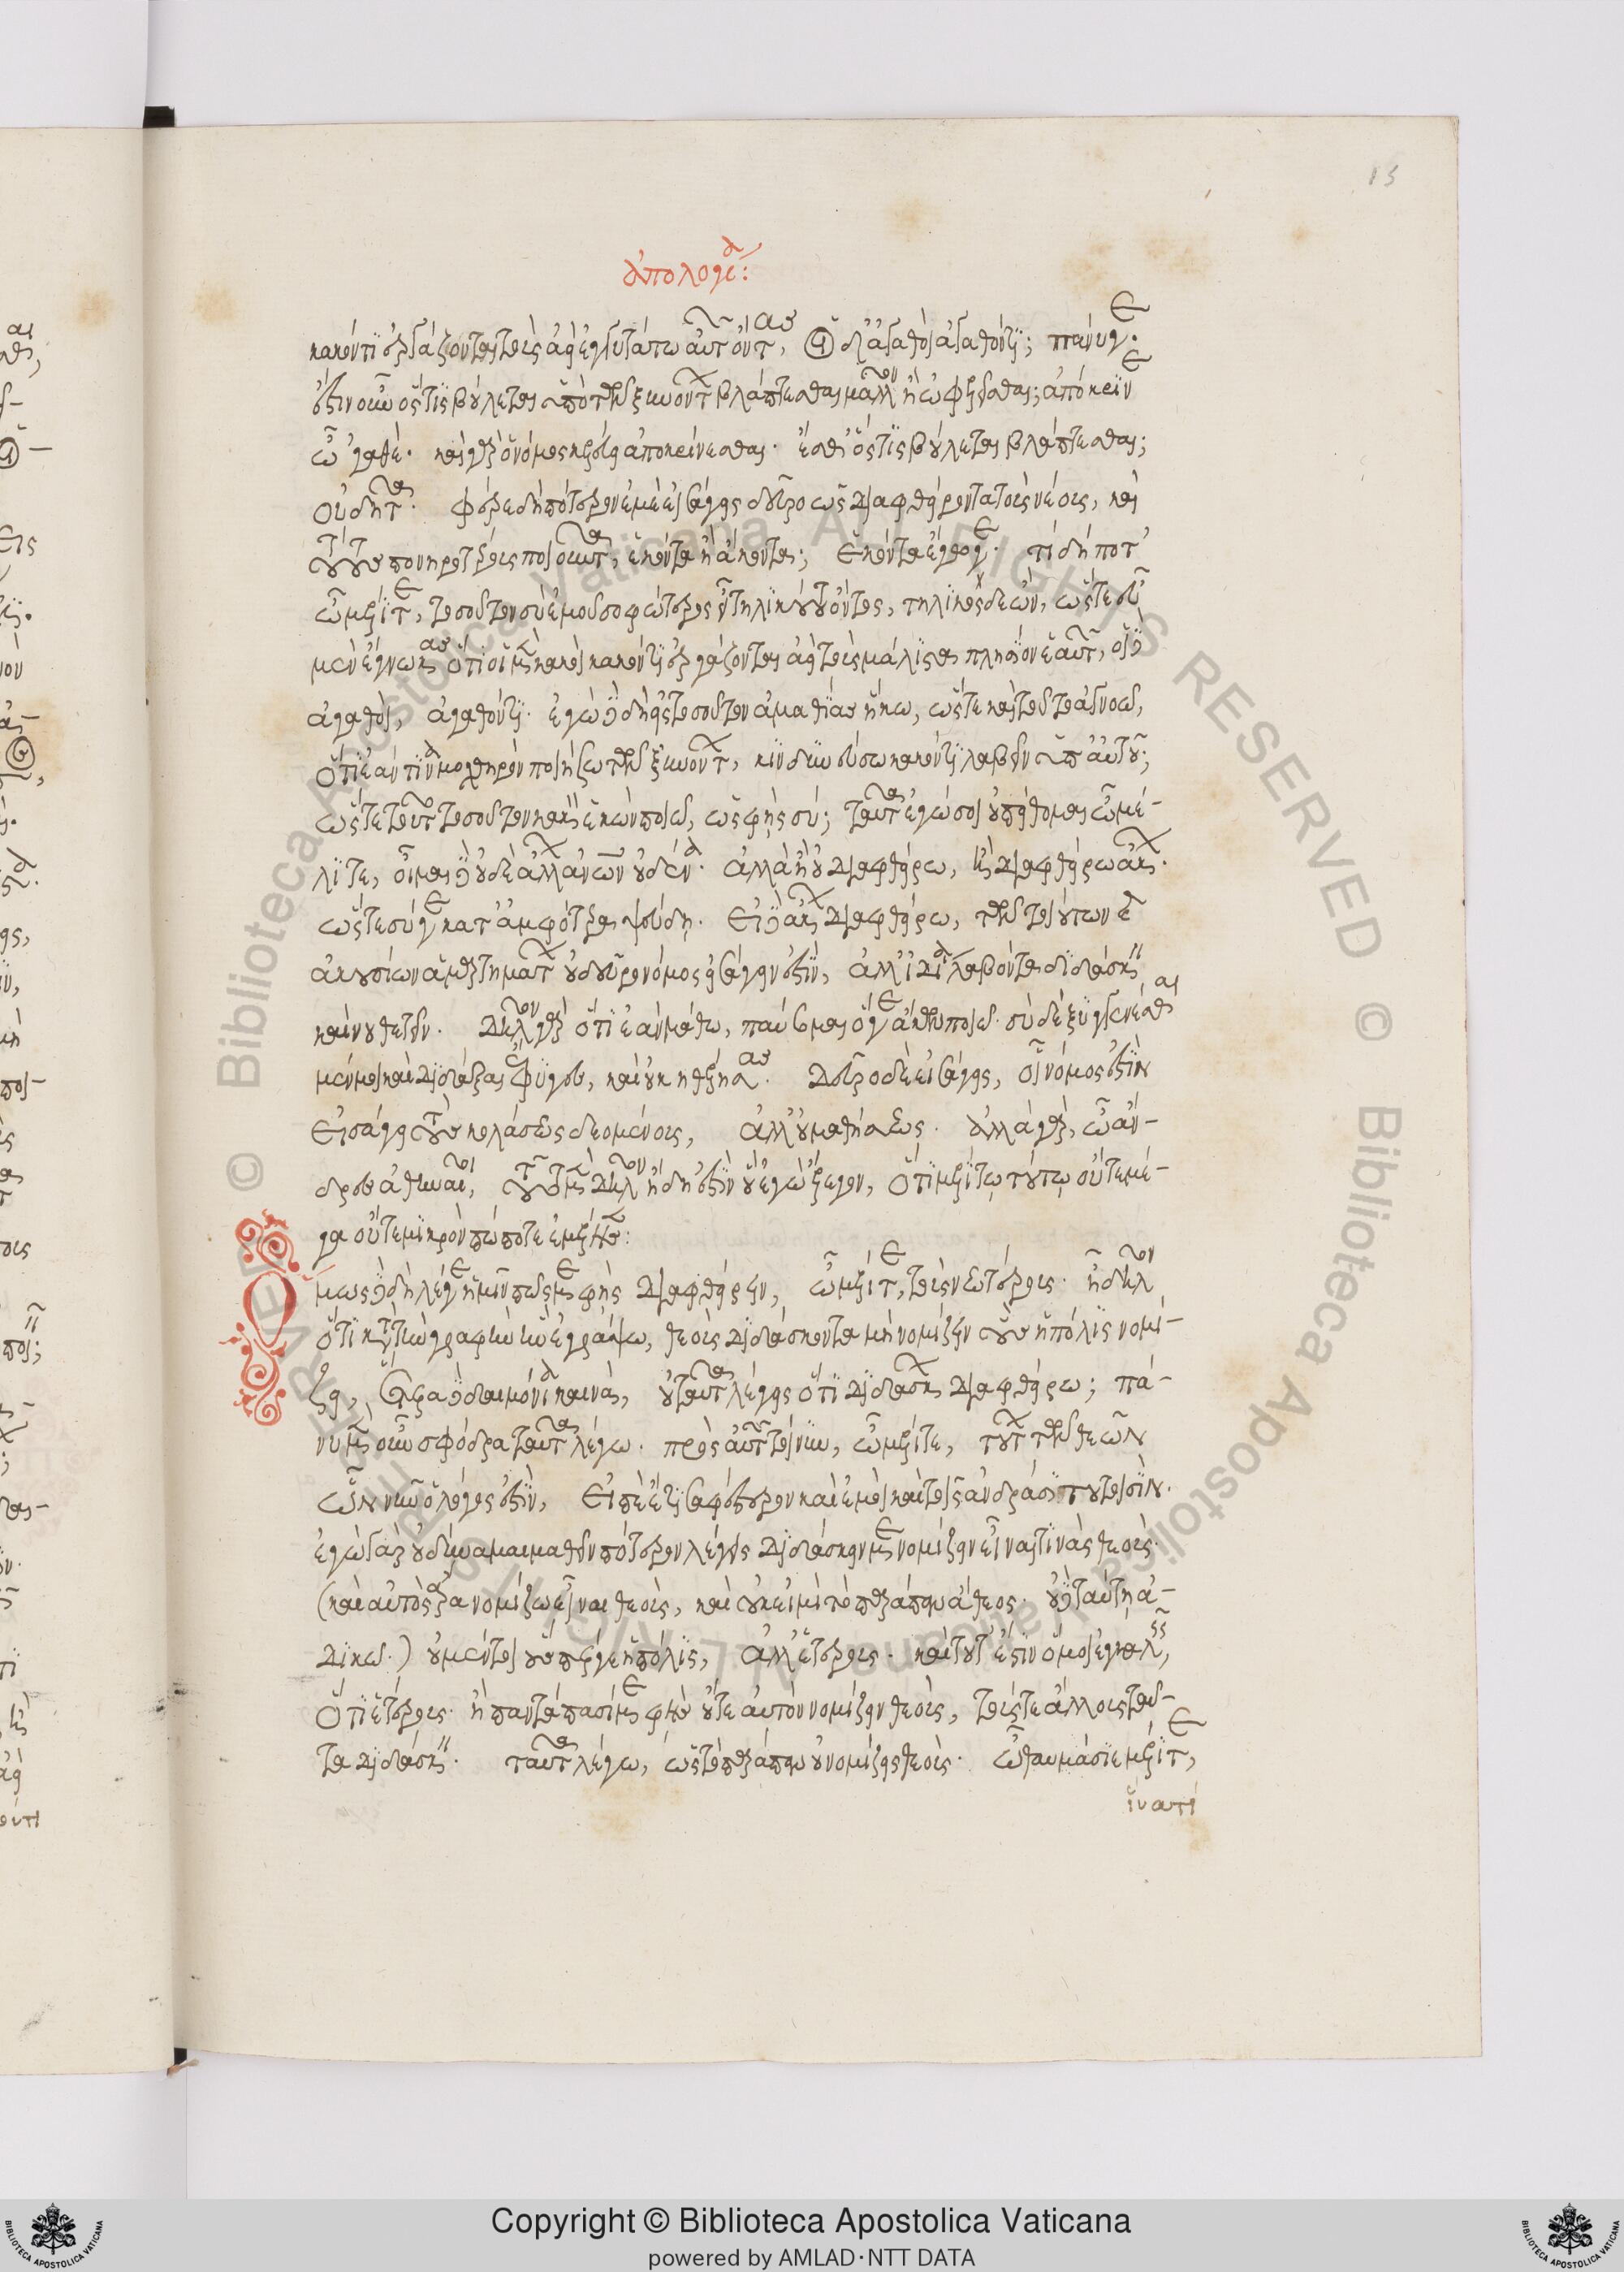 ἀπολογία:
κακόν τι ἐργάζονται τοὺς ἀεὶ ἐγγυτάτω αὐτῶν ὄντας, οἱ δ' ἀγαθοὶ ἀγαθόν τι; πάνυ γε.
ἔστιν οὖν ὅστις βούλεται ὑπὸ τῶν ξυνόντων βλάπτεσθαι μᾶλλον ἢ ὠφελεῖσθαι; ἀπόκρινε
ὦ 'γαθέ. καὶ γὰρ ὁ νόμος κελεύει ἀποκρίνεσθαι. ἔσθ' ὅστις βούλεται βλάπτεσθαι;
οὐ δῆτα. φέρε δὴ πότερον ἐμὲ εἰσάγεις δεῦρο ὡς διαφθείροντα τοὺς νέους, καὶ
τοὺς πονηροτέρους ποιοῦντα, ἑκόντα ἢ ἄκοντα; ἑκόντα ἔγωγε. τί δή ποτ'
ὦ μέλιτε, τοσοῦτον σὺ ἐμοῦ σοφώτερος εἶ τηλικούτου ὄντος, τηλικόσδε ὤν, ὥστε σὺ
μὲν ἔγνωκας ὅτι οἱ μὲν κακοὶ κακόν τι ἐργάζονται ἀεὶ τοὺς μάλιστα πλησίον ἑαυτῶν, οἱ δὲ
ἀγαθοὶ, ἀγαθόν τι. ἐγὼ δὲ δὴ εἰς τοσοῦτον ἀμαθίας ἥκω, ὥστε καὶ τοῦτο ἀγνοῶ,
ὅτι ἐάν τινα μοχθηρὸν ποιήσω τῶν ξυνόντων, κινδυνεύσω κακόν τι λαβεῖν ὑπ' αὐτοῦ;
ὥστε τοῦτο τοσοῦτον κακὸν ἑκὼν ποιῶ, ὡς φὴς σύ; ταῦτα ἐγώ σοι οὐ πείθομαι ὦ μέ-
λιτε, οἶμαι δὲ οὐδὲ ἄλλον ἀνθρώπων οὐδένα. ἀλλὰ ἢ οὐ διαφθείρω, ἢ διαφθείρω ἄκων.
ὥστε σύ γε κατ' ἀμφότερα ψεύδῃ. εἰ δὲ ἄκων διαφθείρω, τῶν τοιούτων καὶ
ἀκουσίων ἁμαρτημάτων οὐ δεῦρο νόμος εἰσάγειν ἐστὶν, ἀλλ' ἰδίᾳ λαβόντα διδάσκειν
καὶ νουθετεῖν. δῆλον γὰρ ὅτι ἐὰν μάθω, παύσομαι ὅ γε ἄκων ποιῶ. σὺ δὲ ξυγγενέσθαι
μέν μοι καὶ διδάξαι ἔφυγες, καὶ οὐκ ἠθέλησας. δεῦρο δὲ εἰσάγεις, οἷ νόμος ἐστὶν
εἰσάγειν τοὺς κολάσεως δεομένους, ἀλλ' οὐ μαθήσεως. ἀλλὰ γὰρ, ὦ ἄν-
δρες ἀθηναῖοι, τοῦτο μὲν δῆλον ἤδη ἐστὶν ὃ ἐγὼ ἔλεγον, ὅτι μελίτῳ τούτῳ οὔτε μέ-
γα οὔτε μικρὸν πώποτε ἐμέλησεν:
Ὅμως δὲ δὴ λέγε ἡμῖν πῶς με φὴς διαφθείρειν, ὦ μέλιτε, τοὺς νεωτέρους. ἢ δῆλον
ὅτι κατὰ τὴν γραφὴν ἣν ἐγράψω, θεοὺς διδάσκοντα μὴ νομίζειν οὓς ἡ πόλις νομί-
ζει, ἕτερα δὲ δαιμόνια καινὰ, οὐ ταῦτα λέγεις ὅτι διδάσκων διαφθείρω; πά-
νυ μὲν οὖν σφόδρα ταῦτα λέγω. πρὸς αὐτῶν τοίνυν, ὦ μέλιτε, τούτων τῶν θεῶν
ὧν νῦν ὁ λόγος ἐστὶν, εἰπὲ ἔτι σαφέστερον καὶ ἐμοὶ καὶ τοῖς ἀνδράσι τουτοισίν.
ἐγὼ γὰρ οὐ δύναμαι μαθεῖν πότερον λέγεις διδάσκειν με νομίζειν εἶναί τινας θεούς.
(καὶ αὐτὸς ἄρα νομίζω εἶναι θεοὺς, καὶ οὐκ εἰμὶ τὸ παράπαν ἄθεος. οὐδὲ ταύτῃ ἀ-
δικῶ.) οὐ μέντοι οὕσπερ γε ἡ πόλις, ἀλλ' ἑτέρους. καὶ τοῦτ' ἔστιν ὅ μοι ἐγκαλεῖς,
ὅτι ἑτέρους. ἢ παντάπασί με φὴς οὔτε αὐτὸν νομίζειν θεοὺς, τούς τε ἄλλους ταῦ-
τα διδάσκειν. ταῦτα λέγω, ὡς τὸ παράπαν οὐ νομίζεις θεούς. ὦ θαυμάσιε μέλιτε,
ἵνα τί